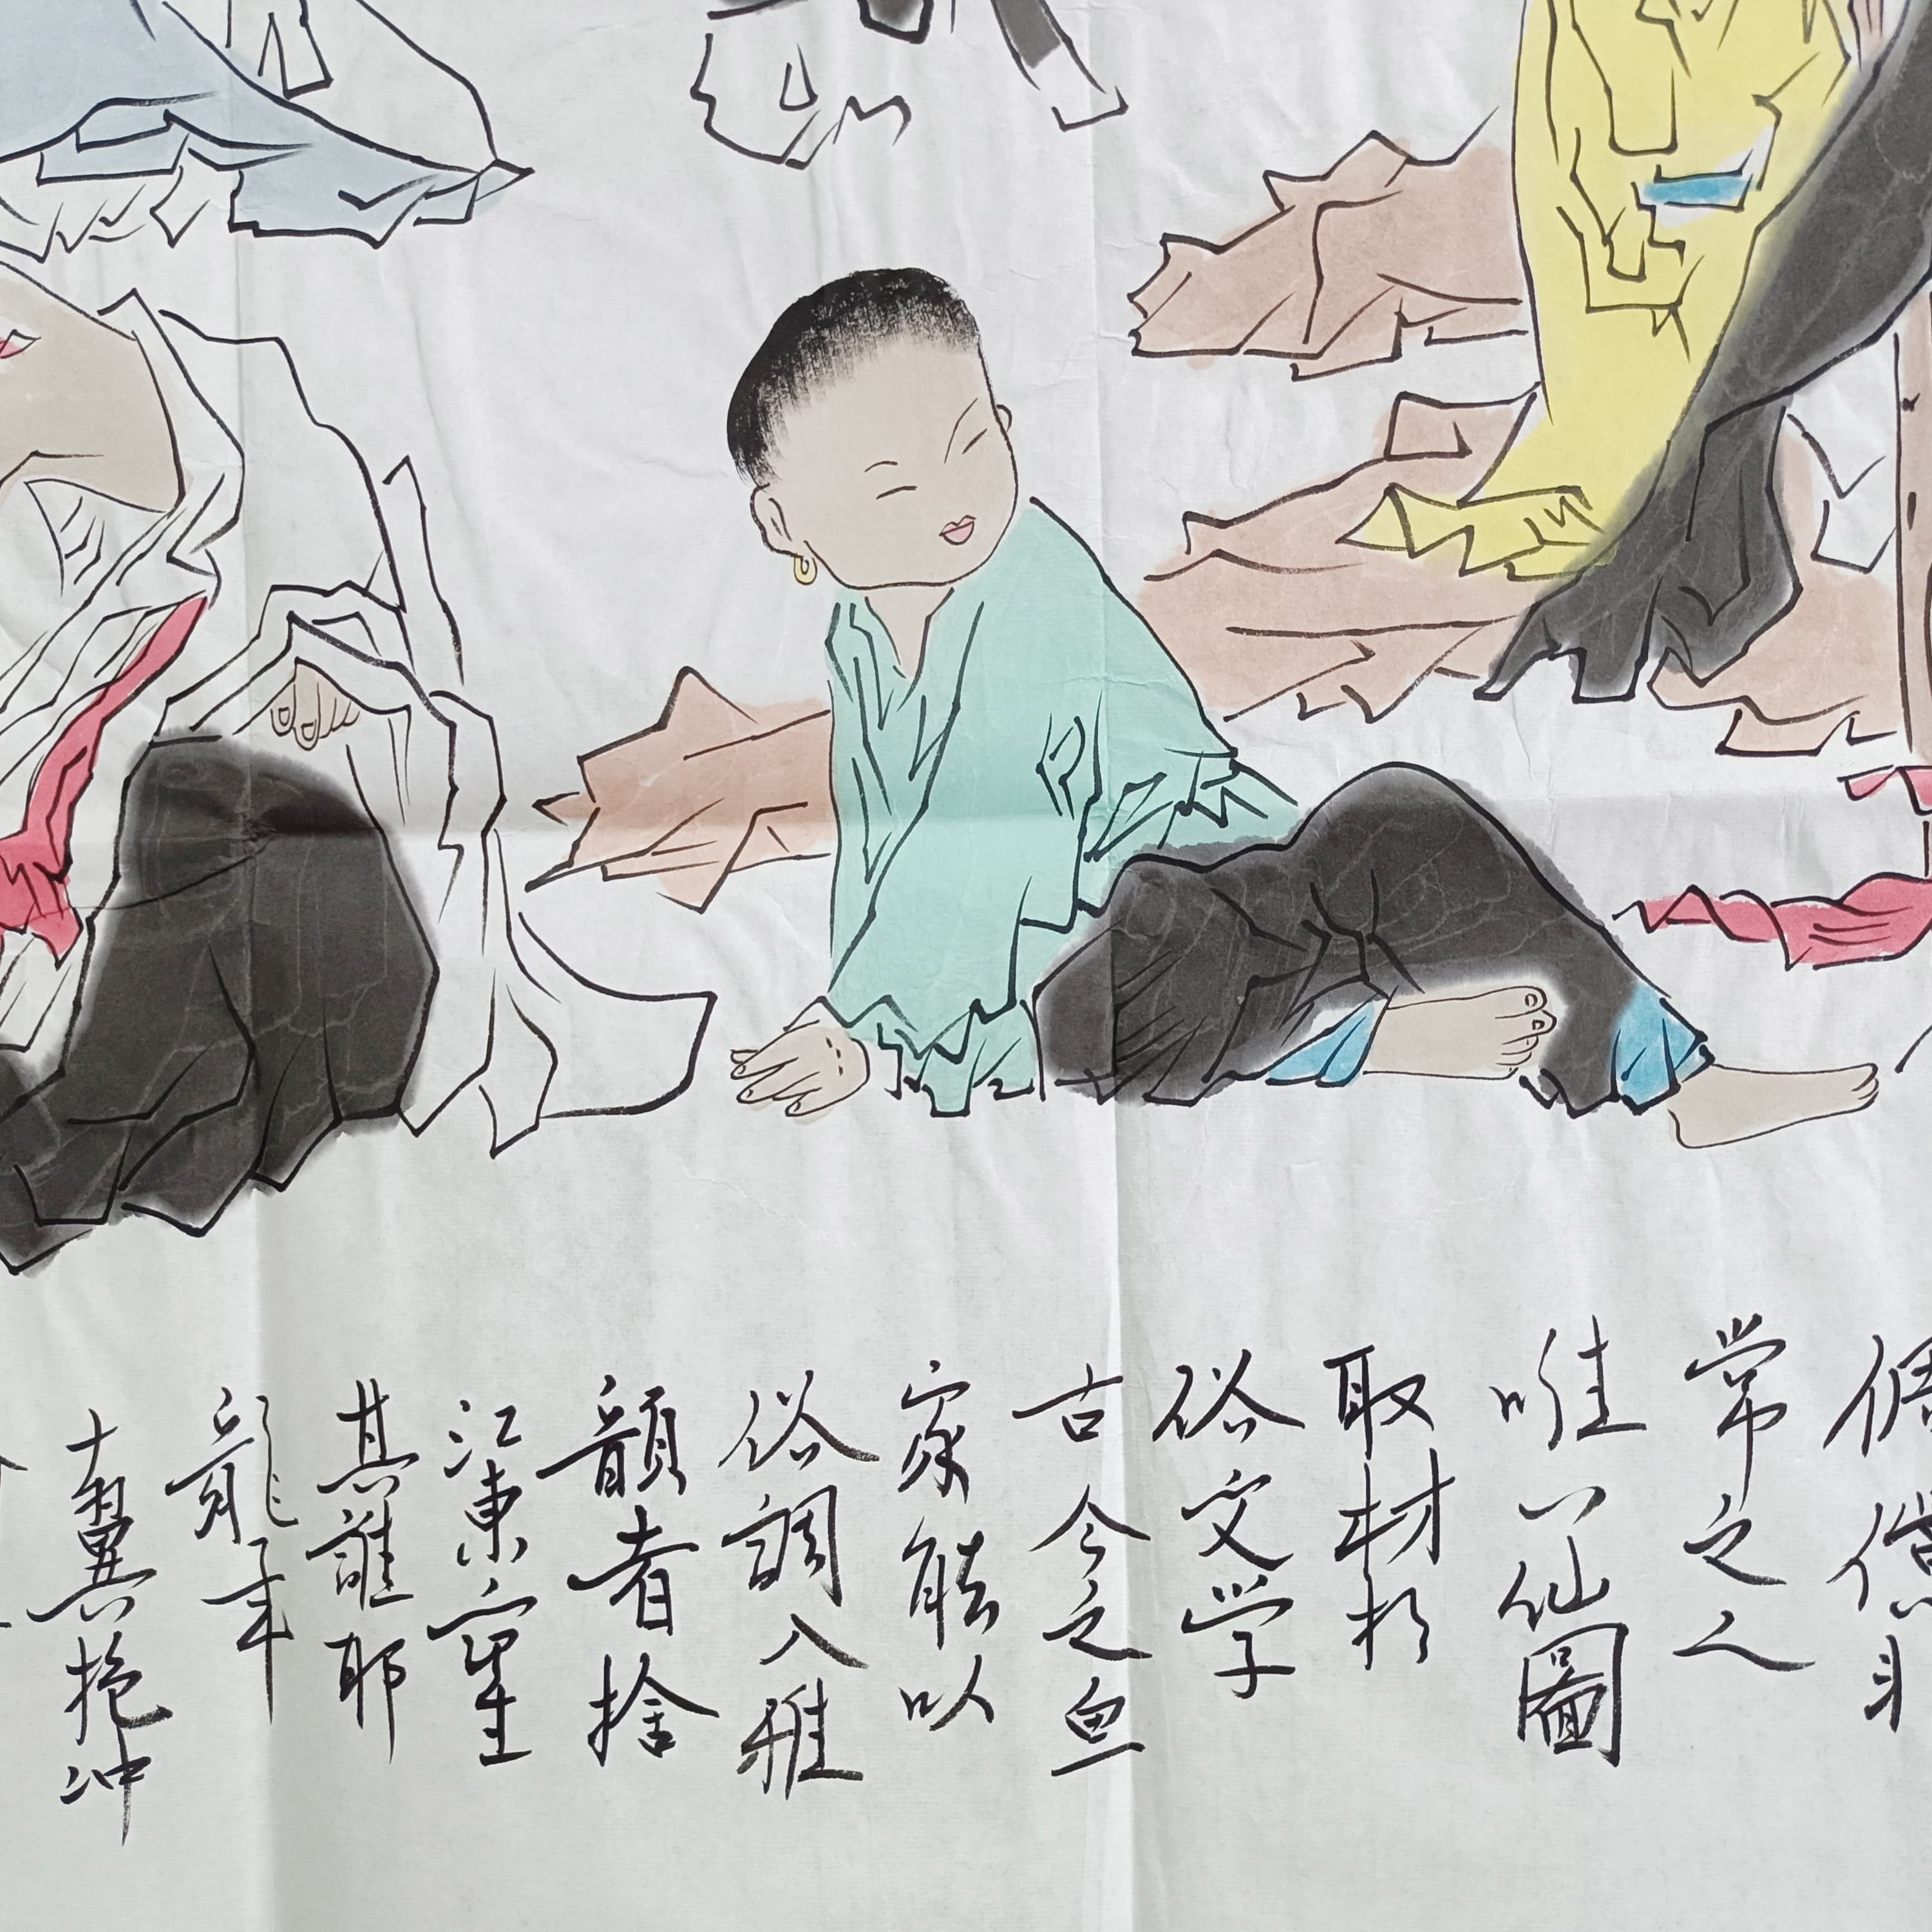 倜儻非
常之人
唯八仙圖
取材於
俗文学
古今之画
家能以
俗調入雅
韻者捨
江東
其誰耶
龍年
十翼抱冲